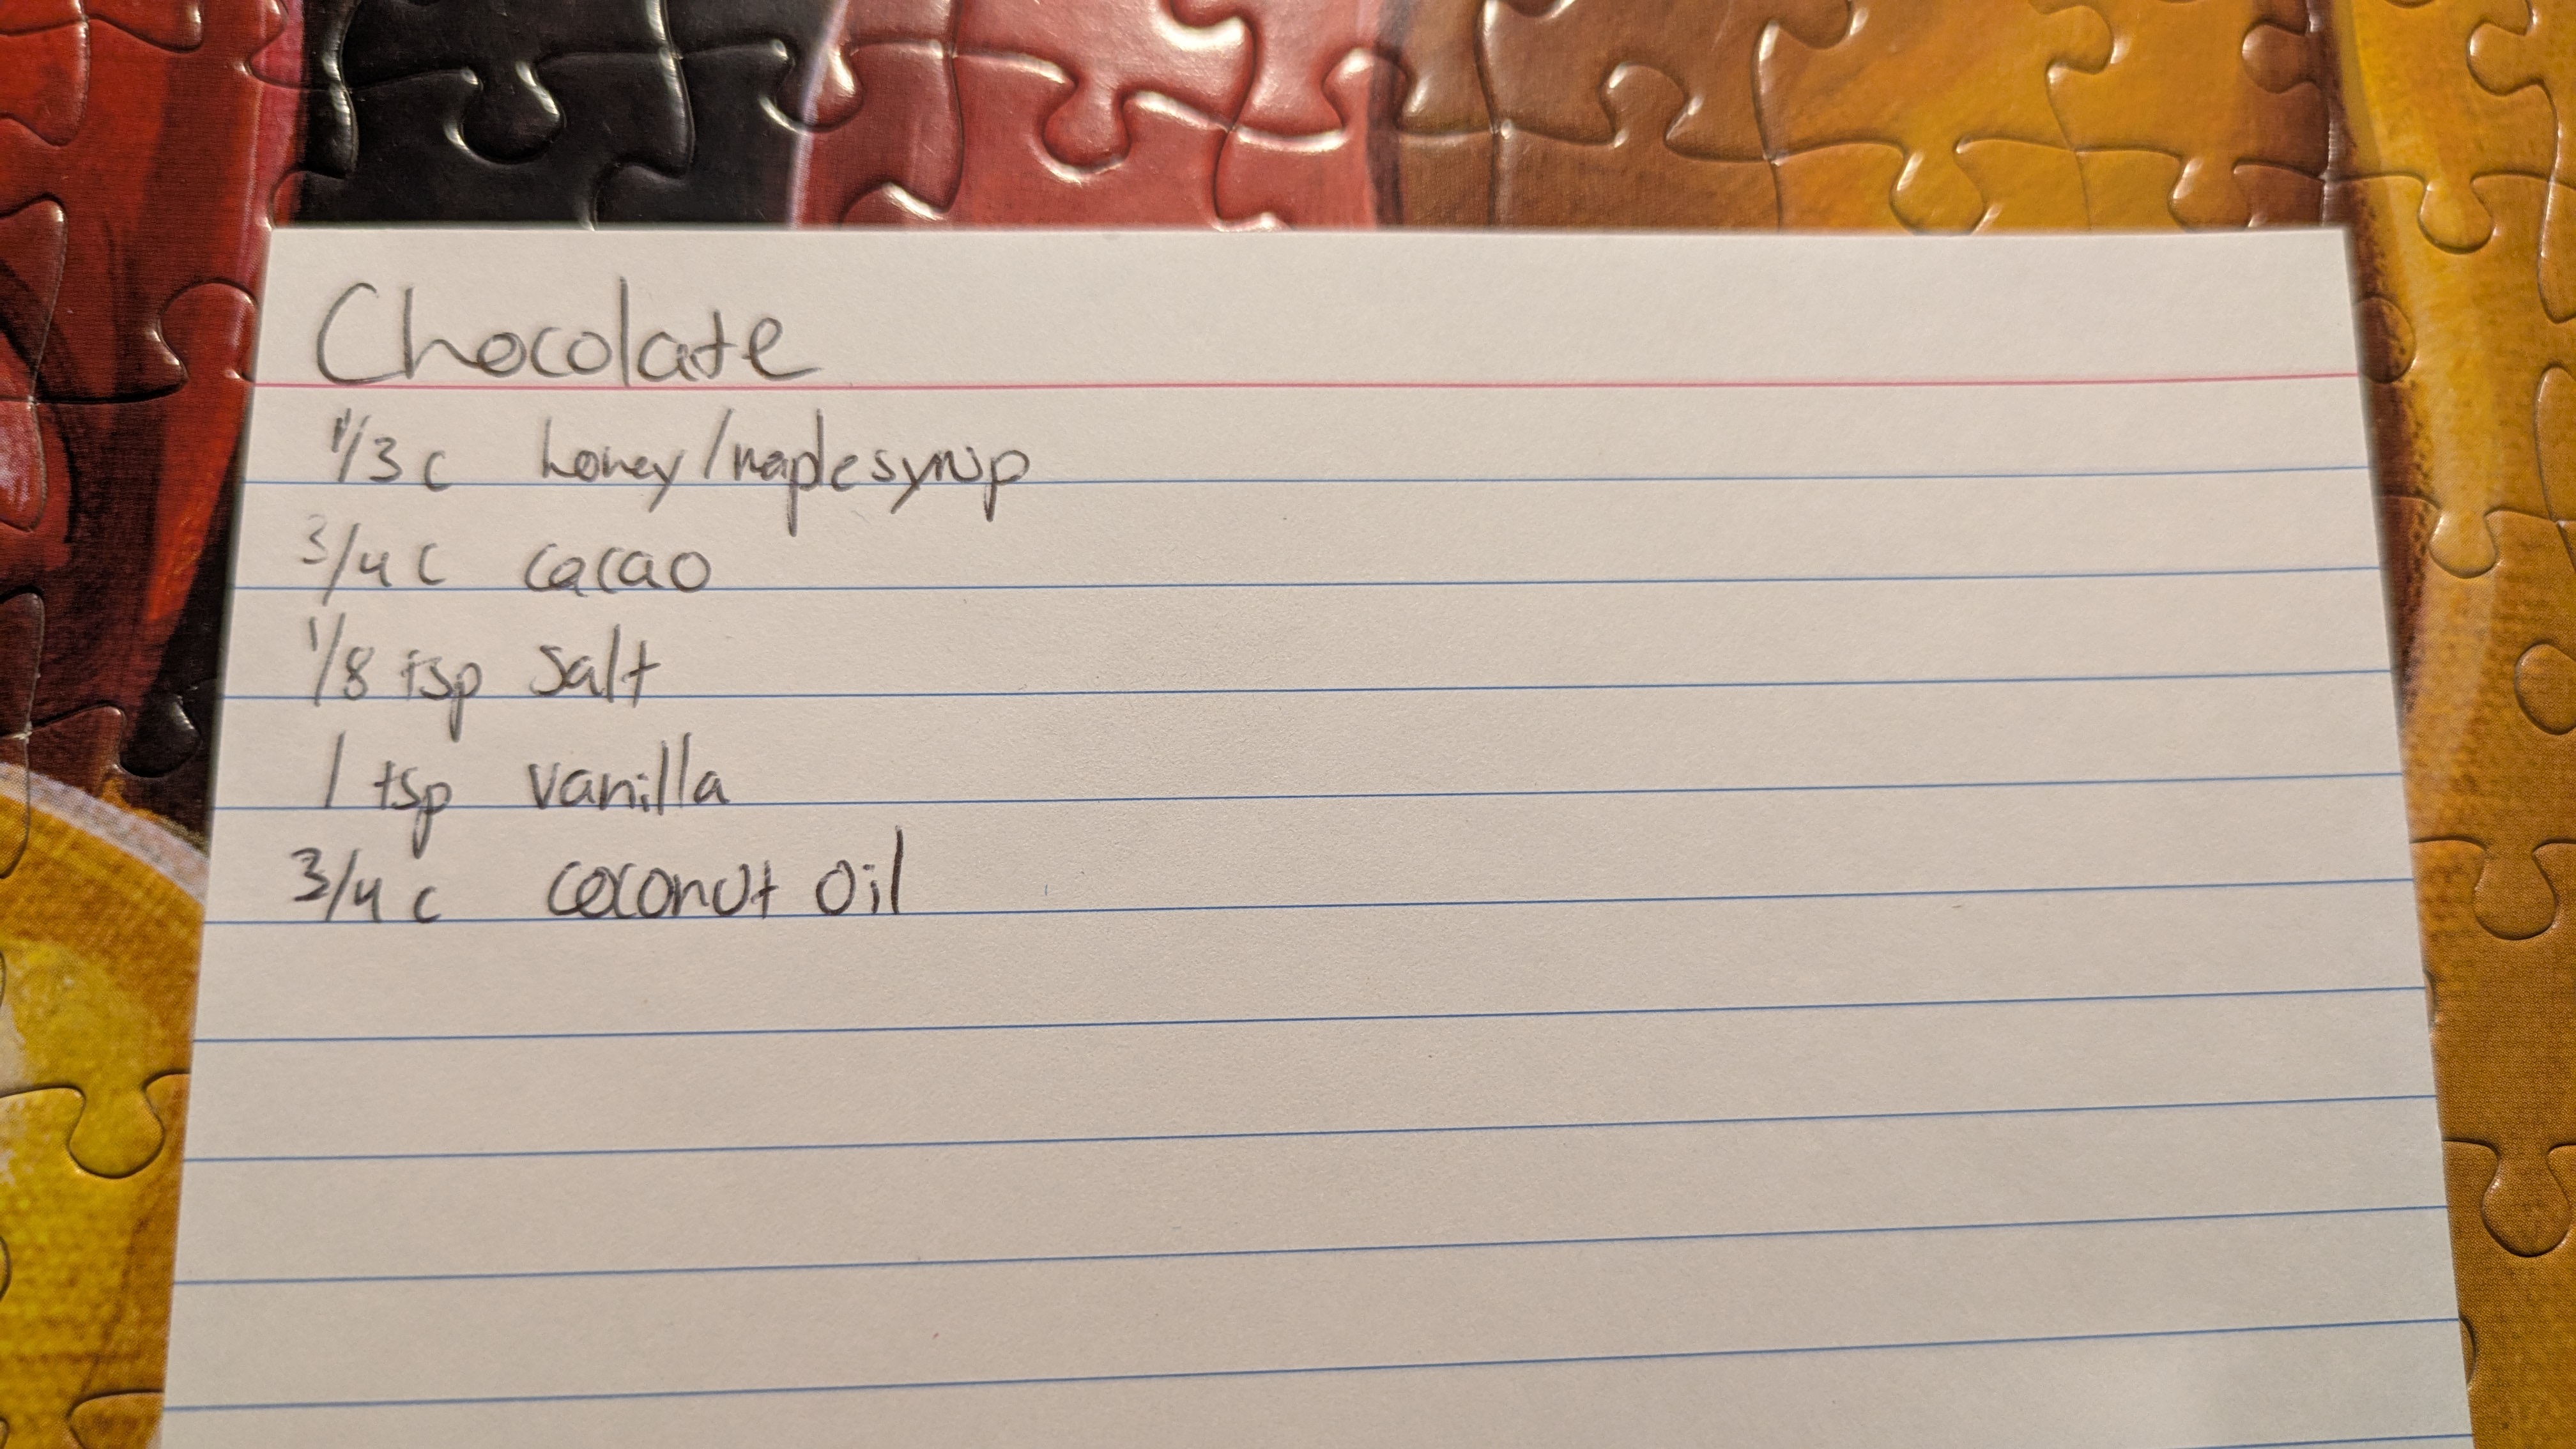 Chocolate
1/3 c honey/maple syrup
3/4 c cacao
1/8 tsp salt
1 tsp vanilla
3/4 c coconut oil